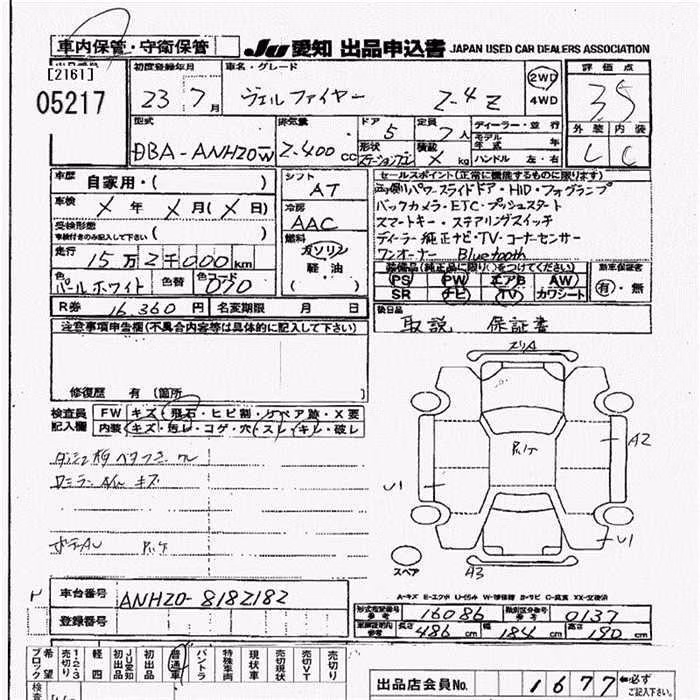 車内保管・守衛保管 JU 愛知 出品申込書 JAPAN USED CAR DEALERS ASSOCIATION
[2161]
05217
初度登録年月 車名・グレード 評価点
23 7月 ヴェルファイヤー 2-4Z 2WD 4WD 3.5
型式 排気量 ドア 定員 ディーラー・並行 外装 内装
DBA-ANH20W 2-400cc 5 7人 モデル年式 年
形状 積載 ハンドル 左・右 C
ステーションワゴン X kg
車歴 自家用・( ) シフト AT
セールスポイント(正常に機能するものに限ります)
両側パワースライドドア・HID・フォグランプ
バックカメラ・ETC・プッシュスタート
スマートキー・ステアリングスイッチ
ディーラー純正ナビ・TV・コーナーセンサー
ワンオーナー Bluetooth
車検 X年 X月(X)日 冷房 AAC
受検形態
車検付きのみ記入して下さい ( )
燃料 ガソリン 軽・油 ( )
走行 15万2千000km
色 パールホワイト 色替 色コード 070
装備品(純正品に限り○をつけてください) 新車保証書
PS PW エアB AW 有・無
SR ナビ TV カワシート
R券 16,360円 名変期限 月 日
後日品 取説 保証書
注意事項申告欄(不具合内容等は具体的に記入して下さい)
修復歴 有(箇所
検査員記入欄 FW キズ・飛石・ヒビ割・リペア跡・X要
内装 キズ・汚レ・コゲ・穴・スレ・キレ・破レ
A2
U1
U1
A3
スペア
A-キズ E-エクボ U-凹み W-補修跡 S-サビ C-腐食 XX-交換済
車台番号 ANH20-8182182
登録番号
型式指定番号 参考 16086 類別区分番号 参考 0137
車検証記載内 参考 長さ 486cm 幅 184cm 高さ 190cm
ブロック 希望 売切り 1・2・3 軽四 JU愛知初出品 初出品 普通車 バントラ 特殊車両 現状車 売切現状 売切VT 売切り
出品店会員No. 1677 必ずご記入下さい。
検査